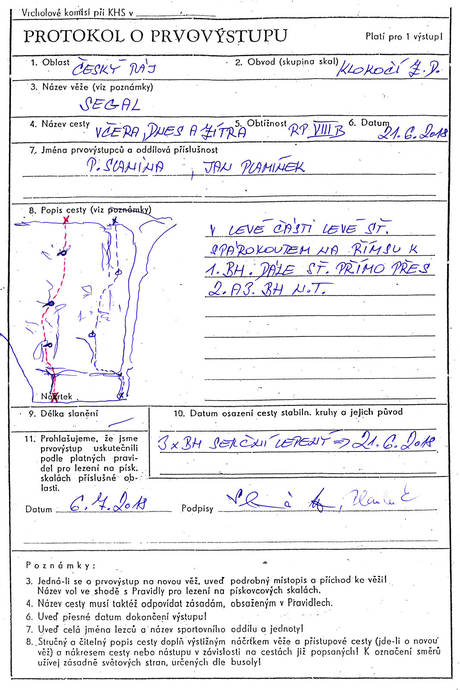 Vrcholové komisi při KHS v
PROTOKOL O PRVOVÝSTUPU
Platí pro 1 výstup!
1. Oblast ČESKÝ RÁJ
2. Obvod (skupina skal) KLOKOČÍ Z.D.
3. Název věže (viz poznámky)
SEGAL
4. Název cesty VČERA, DNES A ZÍTRA 5. Obtížnost RP VIII B 6. Datum 21.6.2018
7. Jména prvovýstupců a oddílová příslušnost
P. SLANINA, JAN PLAMÍNEK
8. Popis cesty (viz poznámky)
V LEVÉ ČÁSTI LEVÉ ST.
SPÁROKOUTEM NA ŘÍMSU K
1. BH. DÁLE ST. PŘÍMO PŘES
2. A 3. BH N.T.
Náčrtek
9. Délka slanění
10. Datum osazení cesty stabiln. kruhy a jejich původ
3 x BH SERČNÍ LEPENÝ => 21.6.2018
11. Prohlašujeme, že jsme
prvovýstup uskutečnili
podle platných pravi-
del pro lezení na písk.
skalách příslušné ob-
lasti.
Datum 6.7.2018 Podpisy
Poznámky:
3. Jedná-li se o prvovýstup na novou věž, uveď podrobný místopis a příchod ke věži!
Název vol ve shodě s Pravidly pro lezení na pískovcových skalách.
4. Název cesty musí taktéž odpovídat zásadám, obsaženým v Pravidlech.
6. Uveď přesné datum dokončení výstupu!
7. Uveď celá jména lezců a název sportovního oddílu a jednoty!
8. Stručný a čitelný popis cesty doplň výstižným náčrtkem věže a přístupové cesty (jde-li o novou
věž) a nákresem cesty nebo nástupu v závislosti na cestách již popsaných! K označení směrů
užívej zásadně světových stran, určených dle busoly!